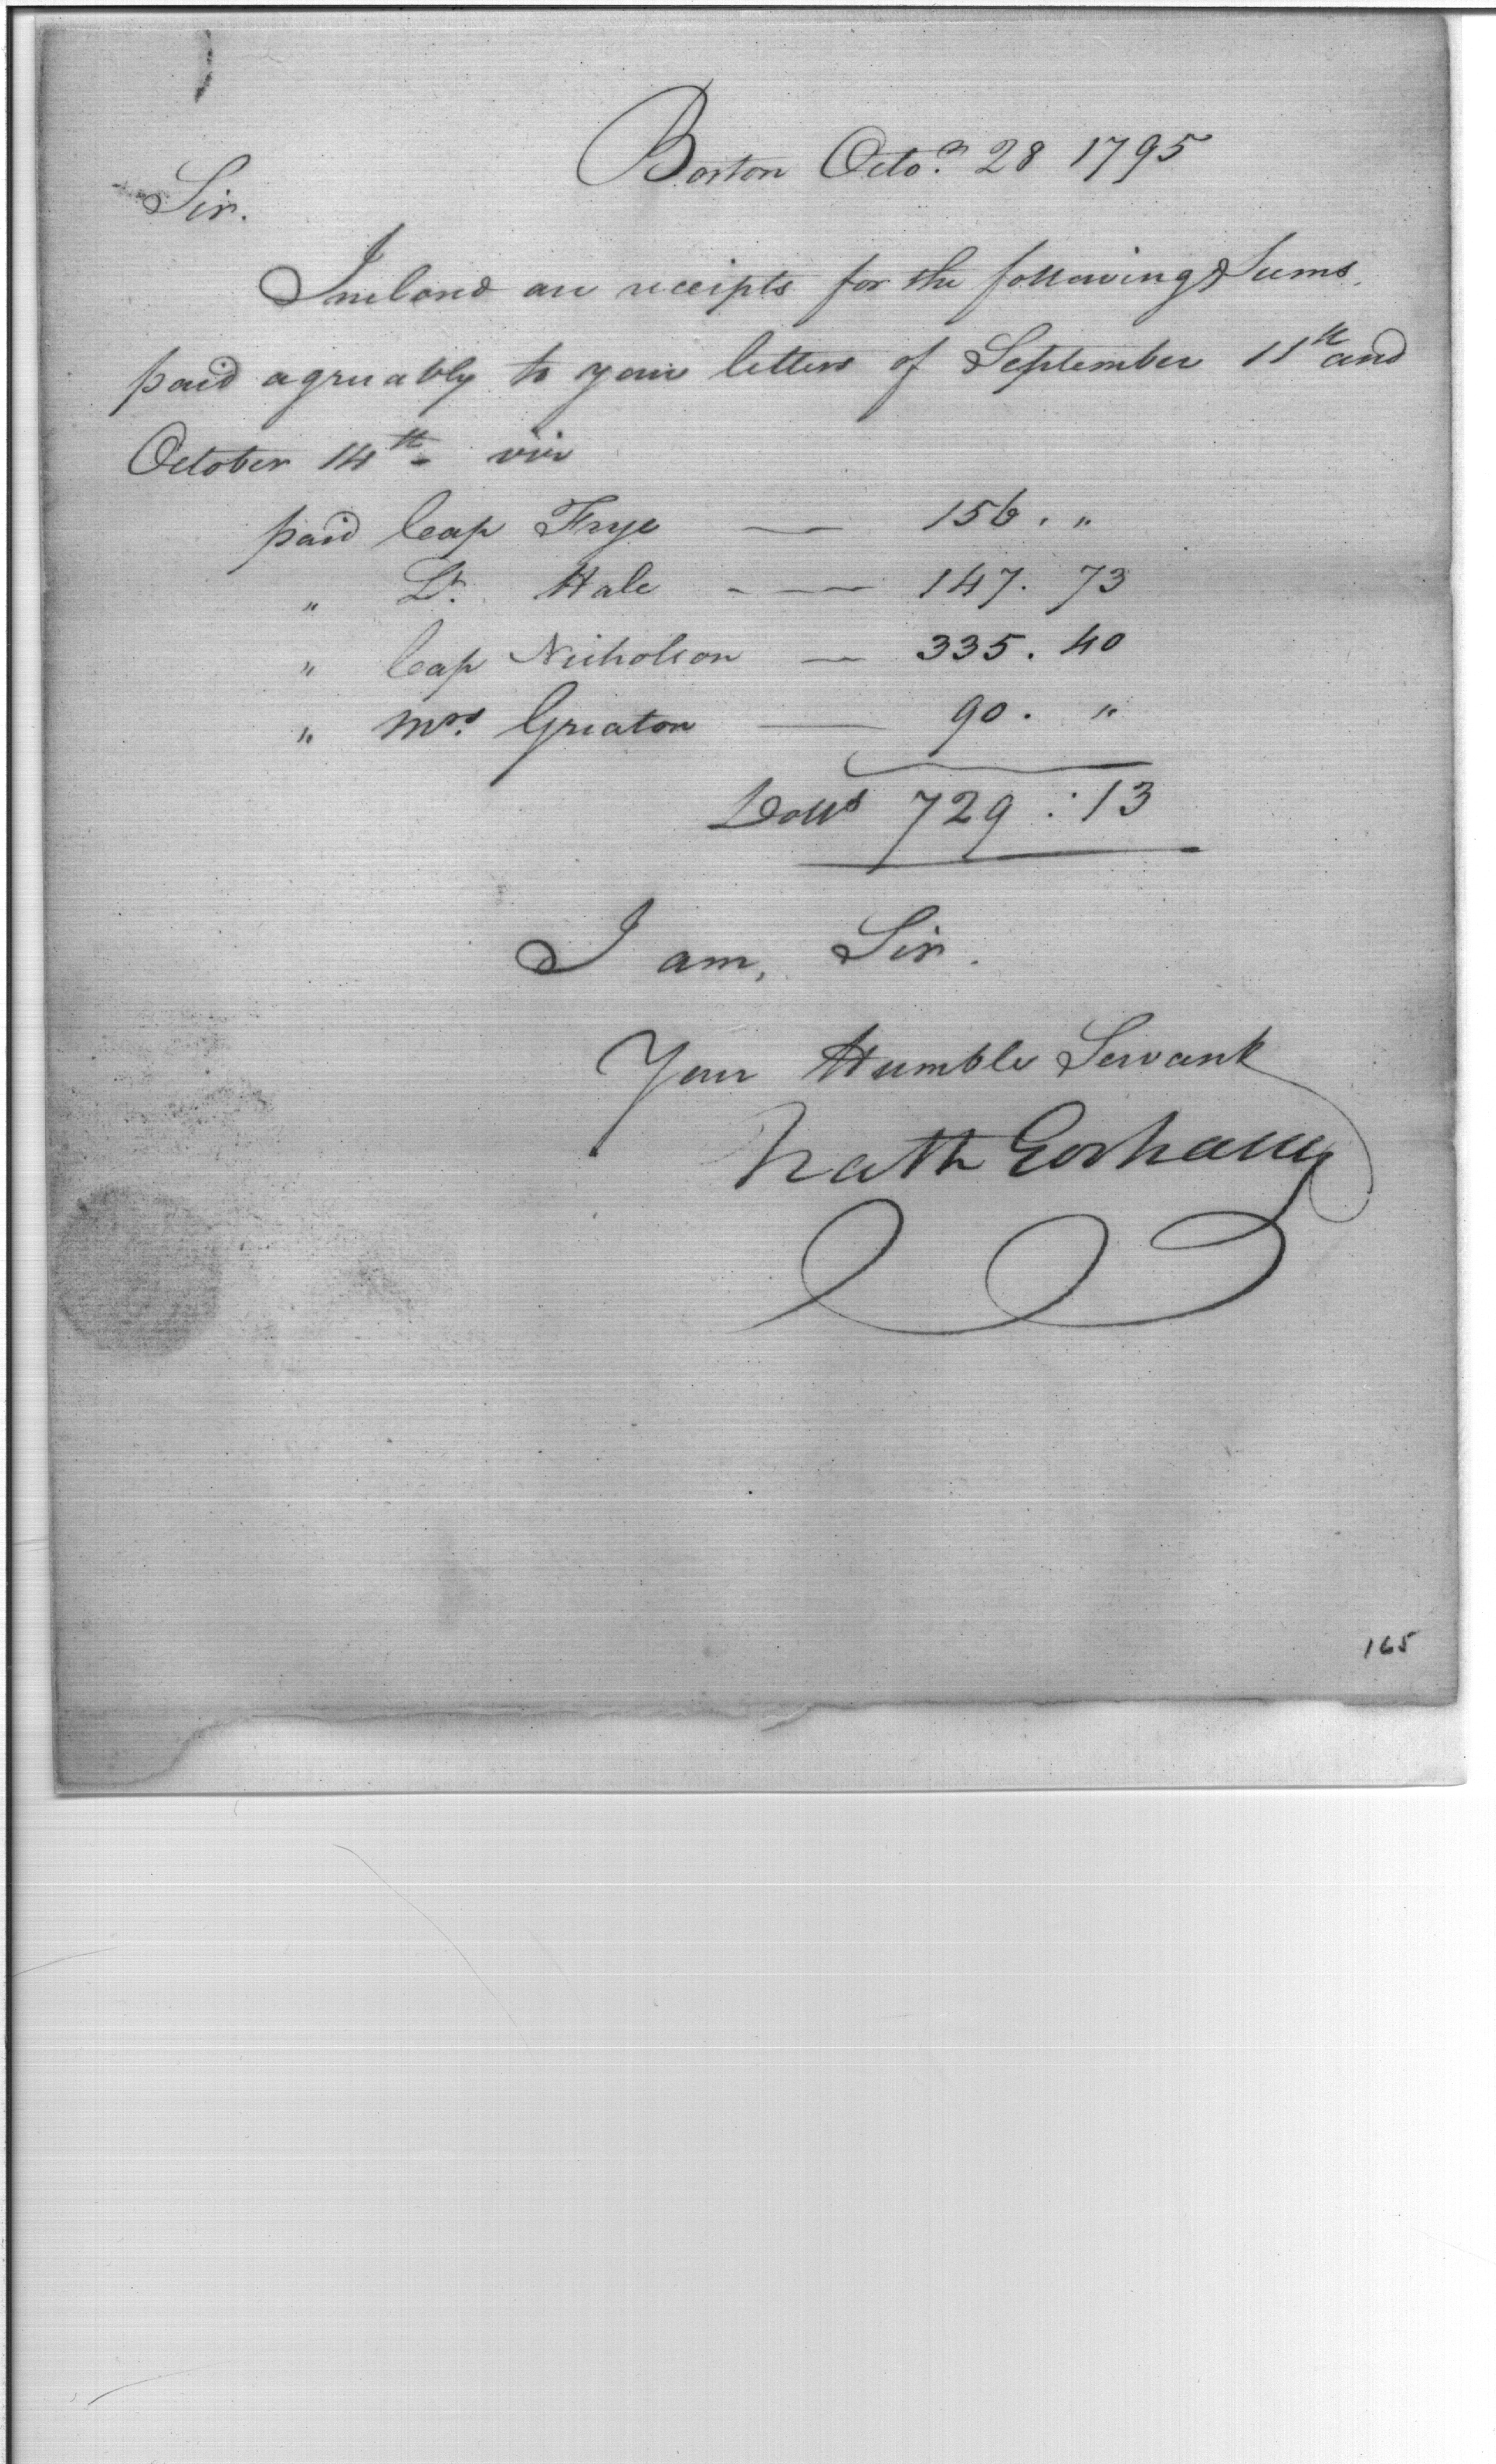 Boston Octor. 28 1795
Sir.
Inclosed are receipts for the following Sums
paid agreuably to your letters of September 11th and
October 14th - viz
paid Cap Frye — 156. "
" Lt. Hale - — 147. 73
" Cap Nicholson — 335. 40
" Mrs. Greaton — 90. "
Dolls 729 : 13
I am, Sir.
Your Humble Servant
Nath Gorham
165